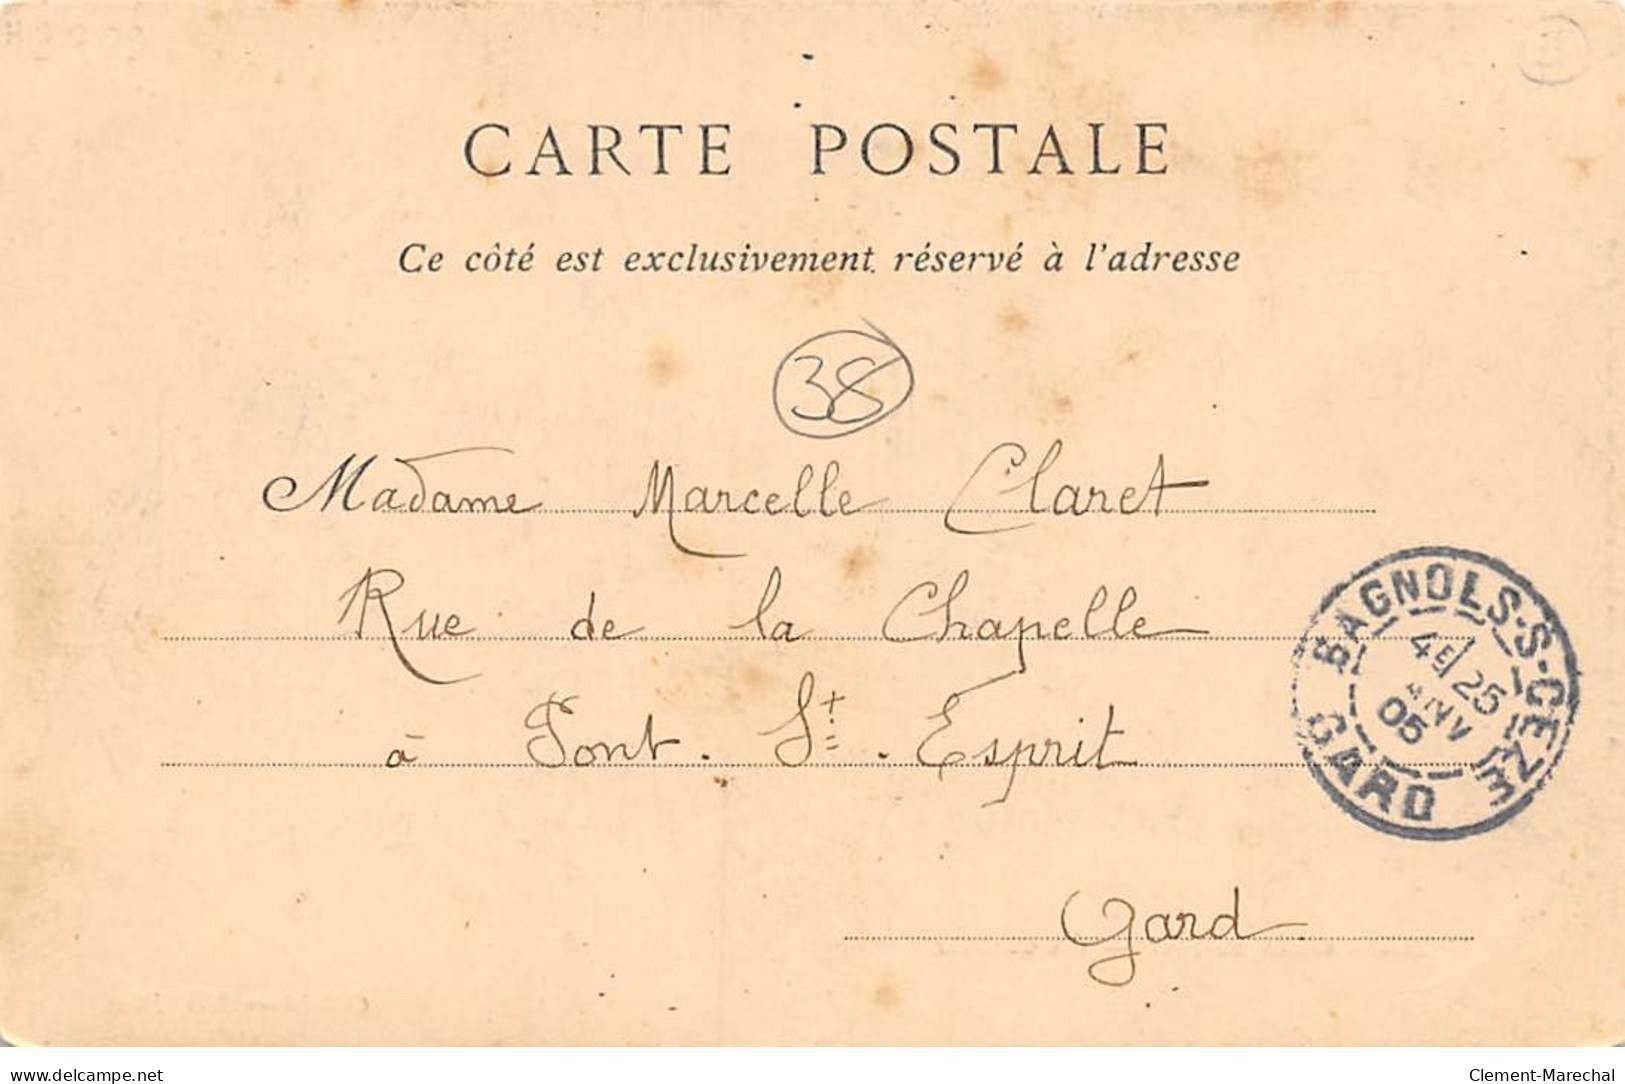 CARTE POSTALE
Ce côté est exclusivement réservé à l'adresse
38
Madame Marcelle Claret
Rue de la Chapelle
à Pont-St-Esprit
Gard
BAGNOLS-S-CEZE
4E/25
JANV
05
GARD
delcampe.net
Clement-Marechal